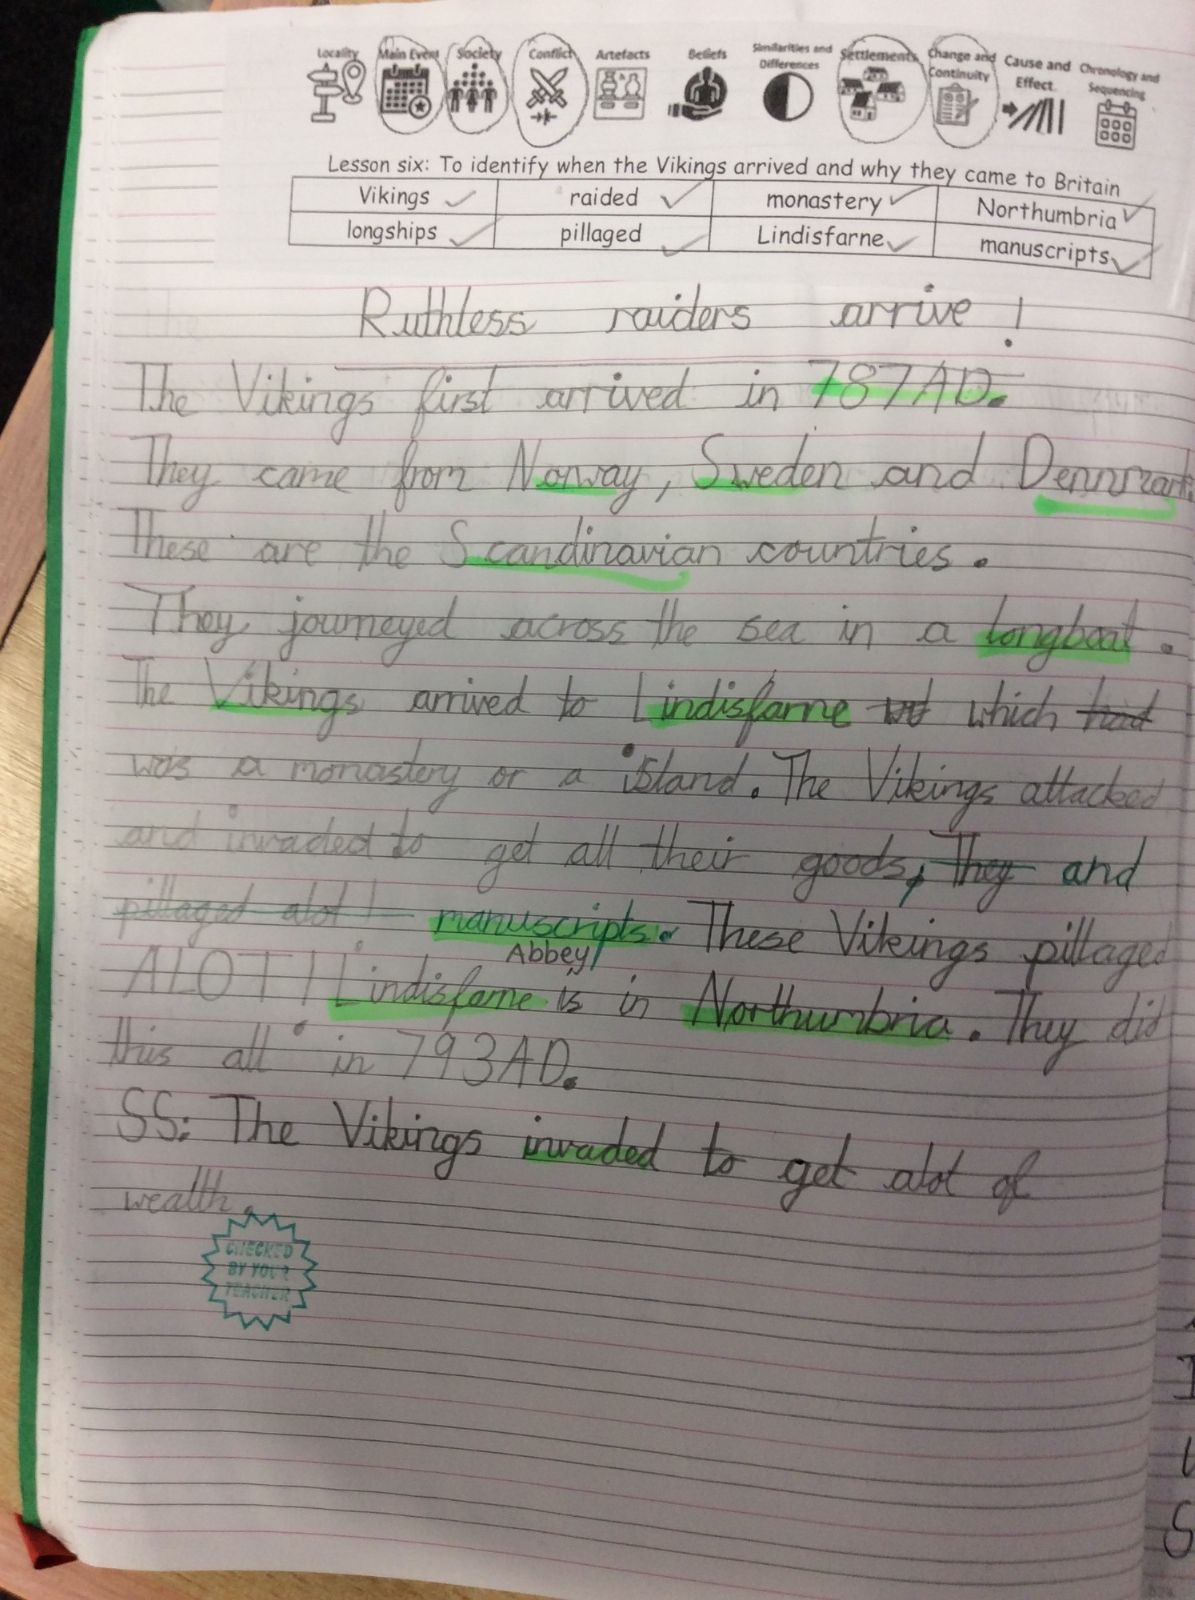 Locality Main Event Society Conflict Artefacts Beliefs Similarities and Differences Settlements Change and Continuity Cause and Effect Chronology and Sequencing
Lesson six: To identify when the Vikings arrived and why they came to Britain
Vikings raided monastery Northumbria
longships pillaged Lindisfarne manuscripts
Ruthless raiders arrive!
The Vikings first arrived in 787AD.
They came from Norway, Sweden and Dennmark
These are the Scandinavian countries.
They journeyed across the sea in a longboat.
The Vikings arrived to Lindisfarne which had
was a monastery or a island. The Vikings attacked
and invaded to get all their goods, They and
pillaged alot! manuscripts. These Vikings pillaged
Abbey
ALOT! Lindisfarne is in Northumbria. They did
this all in 793AD.
SS: The Vikings invaded to get alot of
wealth.
CHECKED
BY YOUR
TEACHER